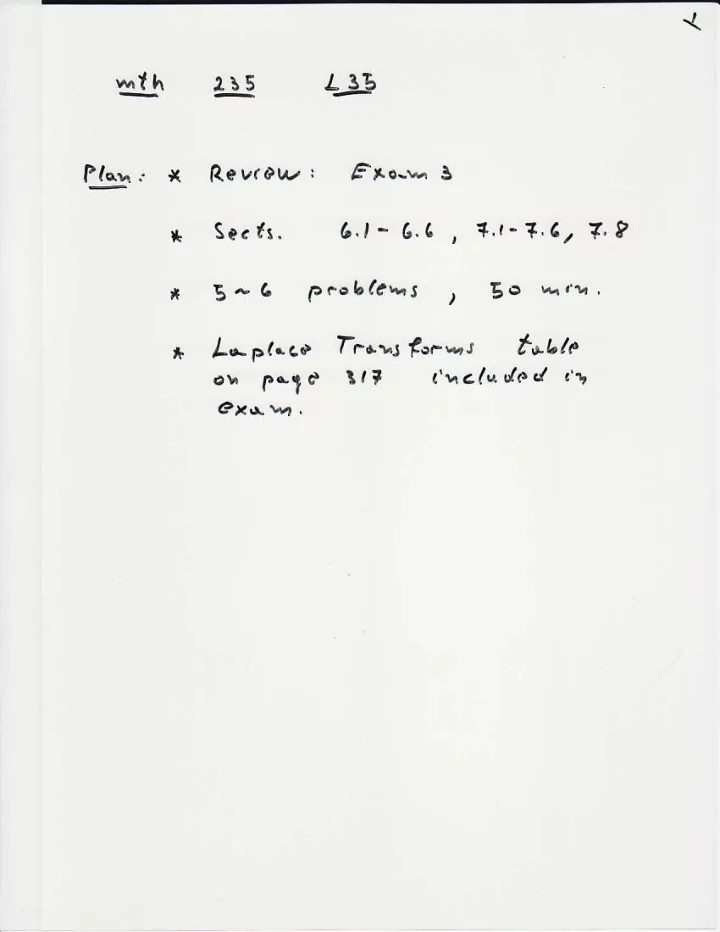 1
mth 235 L35
Plan: * Review: Exam 3
* Sects. 6.1 - 6.6, 7.1 - 7.6, 7.8
* 5 ~ 6 problems, 50 min.
* Laplace Transforms table
on page 317 included in
exam.